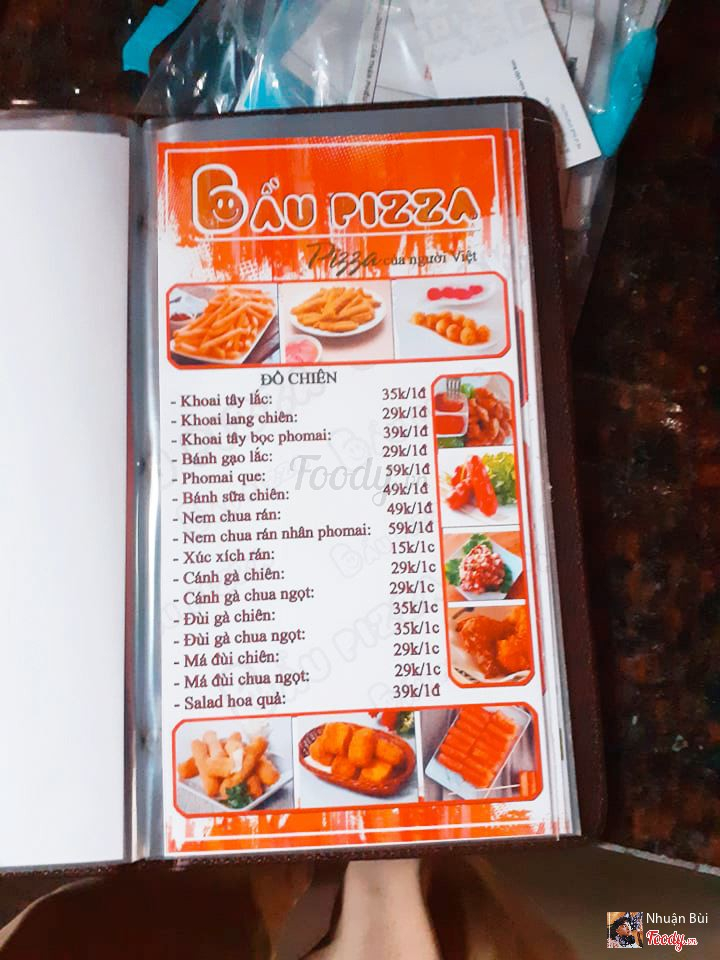 BẨU PIZZA
Pizza của người Việt
ĐỒ CHIÊN
- Khoai tây lắc: 35k/1đ
- Khoai lang chiên: 29k/1đ
- Khoai tây bọc phomai: 39k/1đ
- Bánh gạo lắc: 29k/1đ
- Phomai que: 59k/1đ
- Bánh sữa chiên: 49k/1đ
- Nem chua rán: 49k/1đ
- Nem chua rán nhân phomai: 59k/1đ
- Xúc xích rán: 15k/1c
- Cánh gà chiên: 29k/1c
- Cánh gà chua ngọt: 29k/1c
- Đùi gà chiên: 35k/1c
- Đùi gà chua ngọt: 35k/1c
- Má đùi chiên: 29k/1c
- Má đùi chua ngọt: 29k/1c
- Salad hoa quả: 39k/1đ
Foody.vn
BẨU PIZZA
Nhuận Bùi
Foody.vn